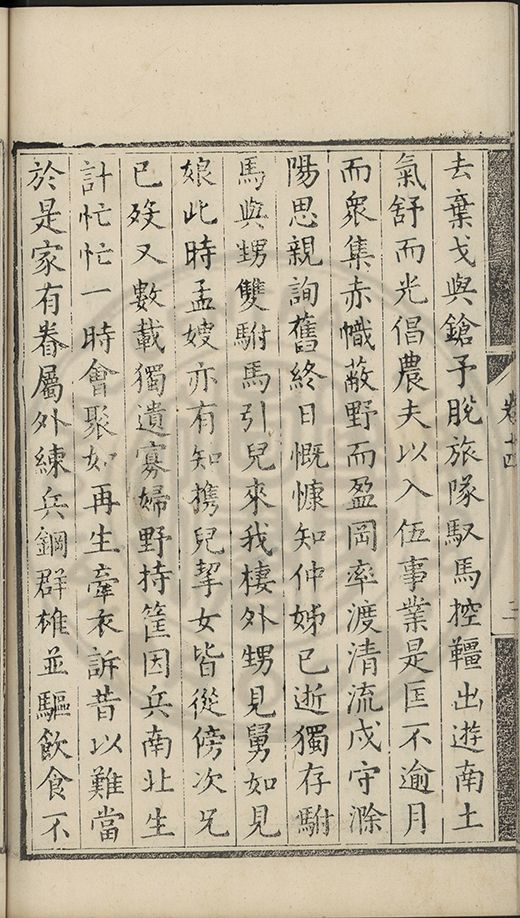 去棄戈與鎗予脫旅隊馭馬控韁出遊南土
氣舒而光倡農夫以入伍事業是匡不逾月
而眾集赤幟蔽野而盈岡率渡清流戍守滁
陽思親詢舊終日慨慷知仲姊已逝獨存駙
馬與甥雙駙馬引兒來我棲外甥見舅如見
娘此時孟嫂亦有知携兒挈女皆從傍次兄
已歿又數載獨遺寡婦野持筐因兵南北生
計忙忙一時會聚如再生牽衣訴昔以難當
於是家有眷屬外練兵鋼群雄並驅飲食不
卷十四
二